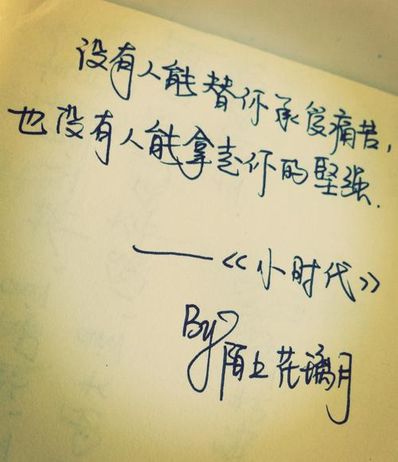 没有人能替你承受痛苦,
也没有人能拿走你的坚强.
——《小时代》
By
陌上花璃月